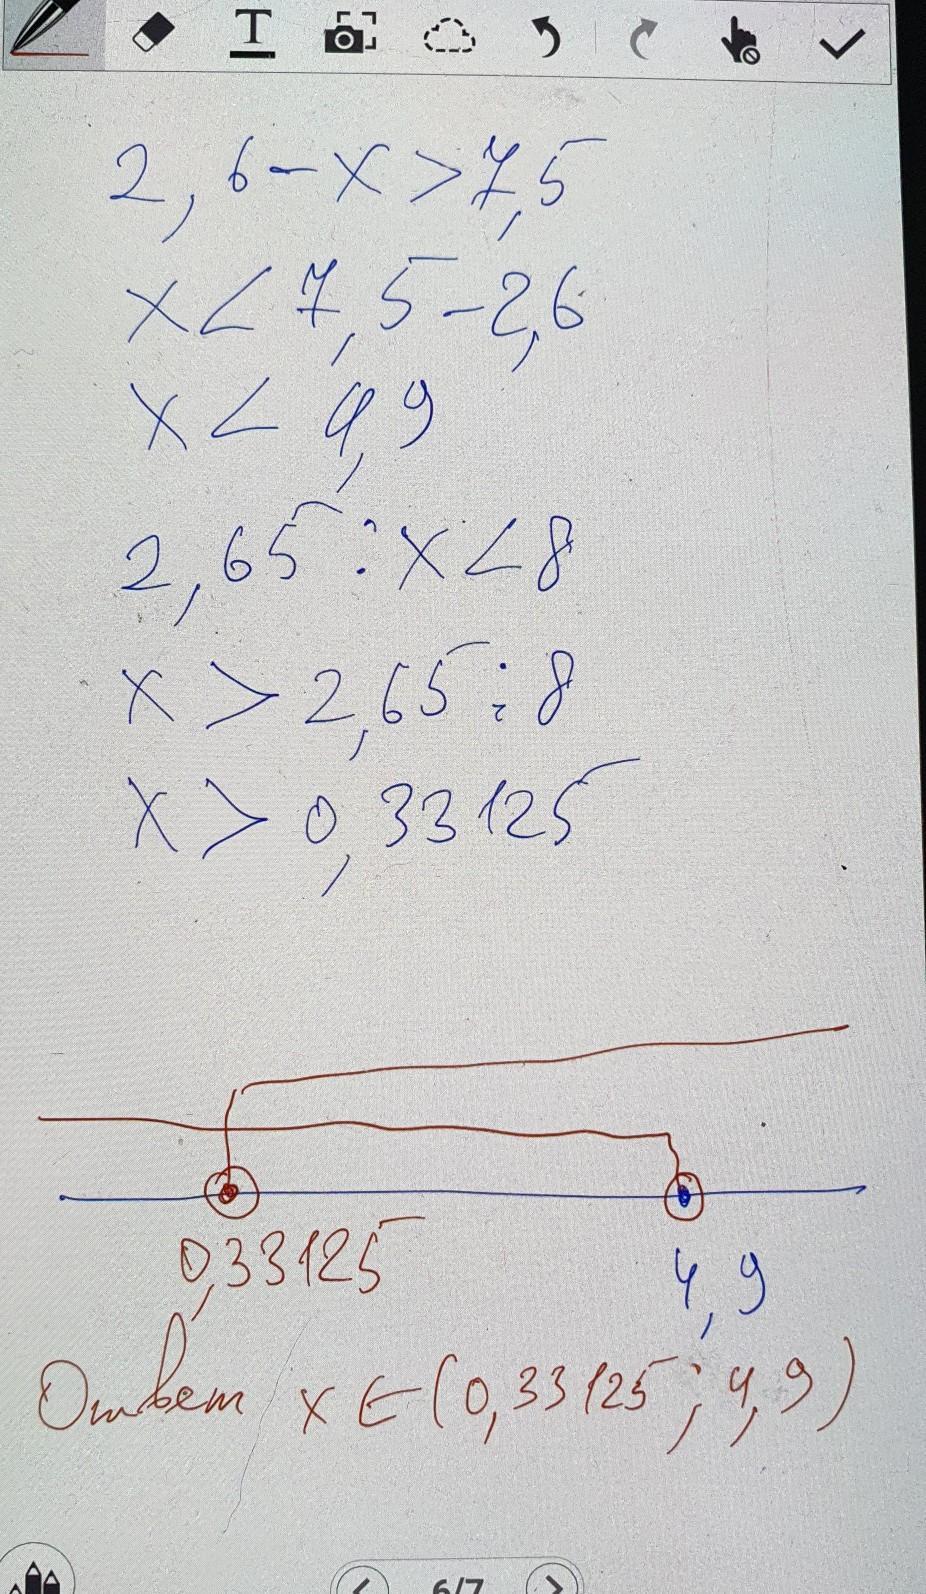 T
2,6-x>7,5
x<7,5-2,6
x<4,9
2,65:x<8
x>2,65:8
x>0,33125
0,33125 4,9
Ответ x∈(0,33125;4,9)
6/7